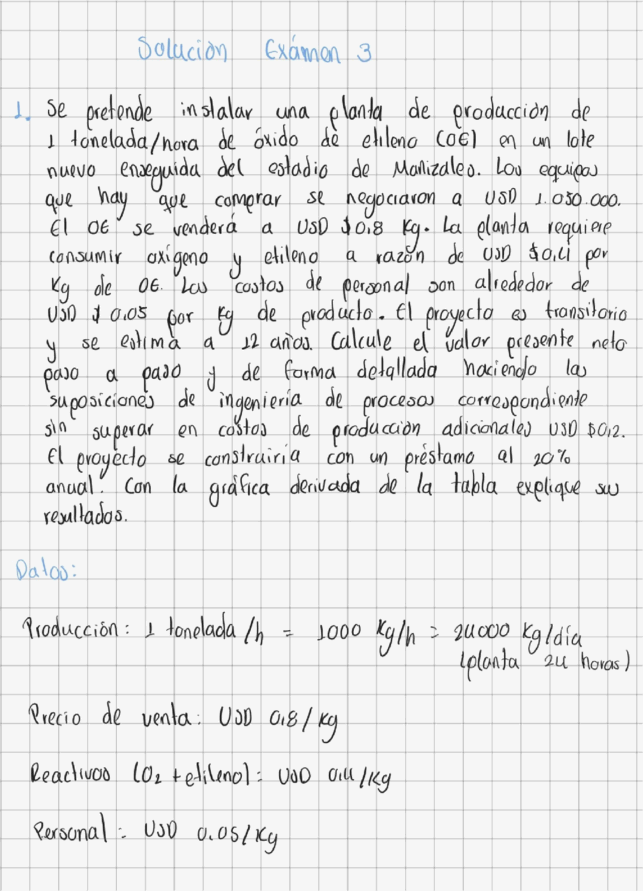 Solución Exámen 3
1. Se pretende instalar una planta de producción de
1 tonelada/hora de óxido de etileno (OE) en un lote
nuevo enseguida del estadio de Manizales. Los equipos
que hay que comprar se negociaron a USD 1.050.000.
El OE se venderá a USD $0,8 Kg. La planta requiere
consumir oxígeno y etileno a razón de USD $0,4 por
Kg de OE. Los costos de personal son alrededor de
USD $ 0.05 por Kg de producto. El proyecto es transitorio
y se estima a 12 años. Calcule el valor presente neto
paso a paso y de forma detallada haciendo las
suposiciones de ingeniería de procesos correspondiente
sin superar en costos de producción adicionales USD $0,2.
El proyecto se construiría con un préstamo al 20%
anual. Con la gráfica derivada de la tabla explique sus
resultados.
Datos:
Producción: 1 tonelada/h = 1000 Kg/h = 24000 Kg/día
(planta 24 horas)
Precio de venta: USD 0,8/Kg
Reactivos (O2 + etileno): USD 0,4/Kg
Personal: USD 0.05/Kg